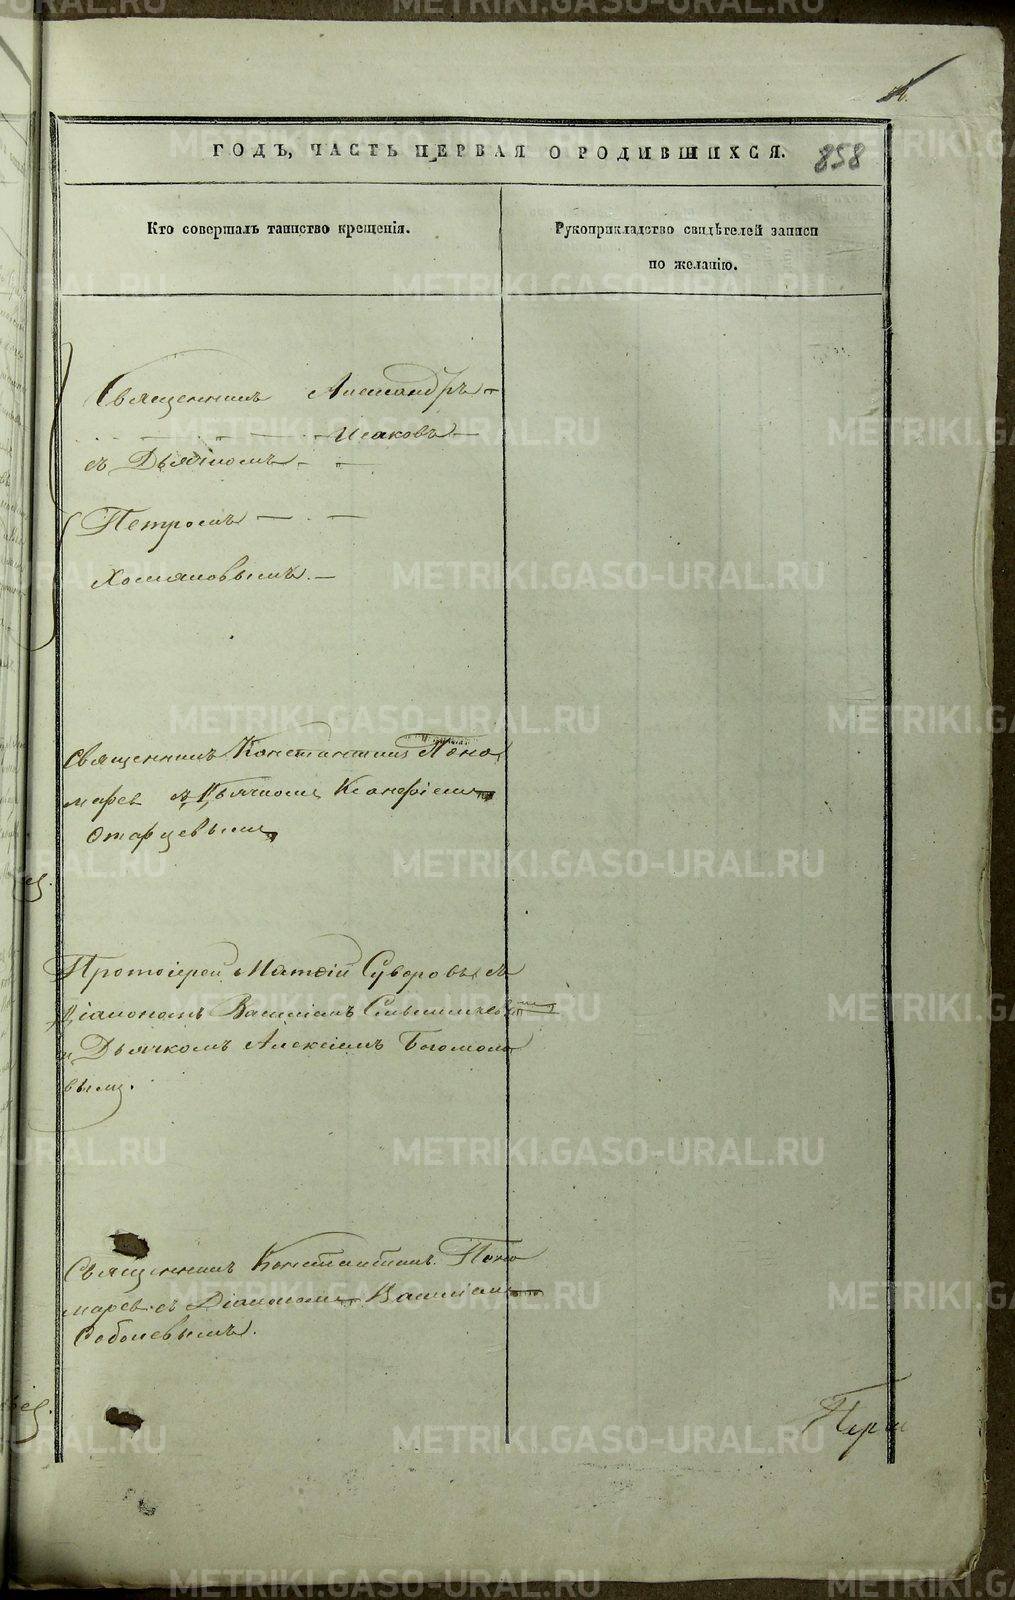 ГОДЪ, ЧАСТЬ ПЕРВАЯ О РОДИВШИХСЯ.
858
Кто совершалъ таинство крещенія.
Рукоприкладство свидѣтелей записи
по желанію.
Священникъ Александръ
Исаковъ
съ Дьячкомъ
Петромъ
Хомяковымъ.
Священникъ Константинъ Поно
маревъ съ Дьячкомъ
Старцевымъ
Протоіерей Матѳій Суворовъ съ
Діакономъ Василіемъ
и Дьячкомъ Алексіемъ Богомоло
вымъ.
Священникъ Константинъ Поно
маревъ съ Діакономъ Василіемъ
Соболевымъ.
METRIKI.GASO-URAL.RU